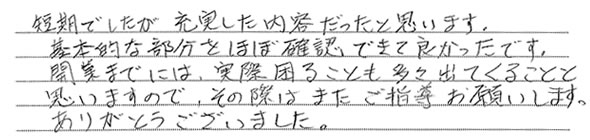 短期でしたが 充実した内容だったと思います。
基本的な部分をほぼ確認できて良かったです。
開業までには、実際困ることも多々出てくることと
思いますので、その際はまたご指導お願いします。
ありがとうございました。